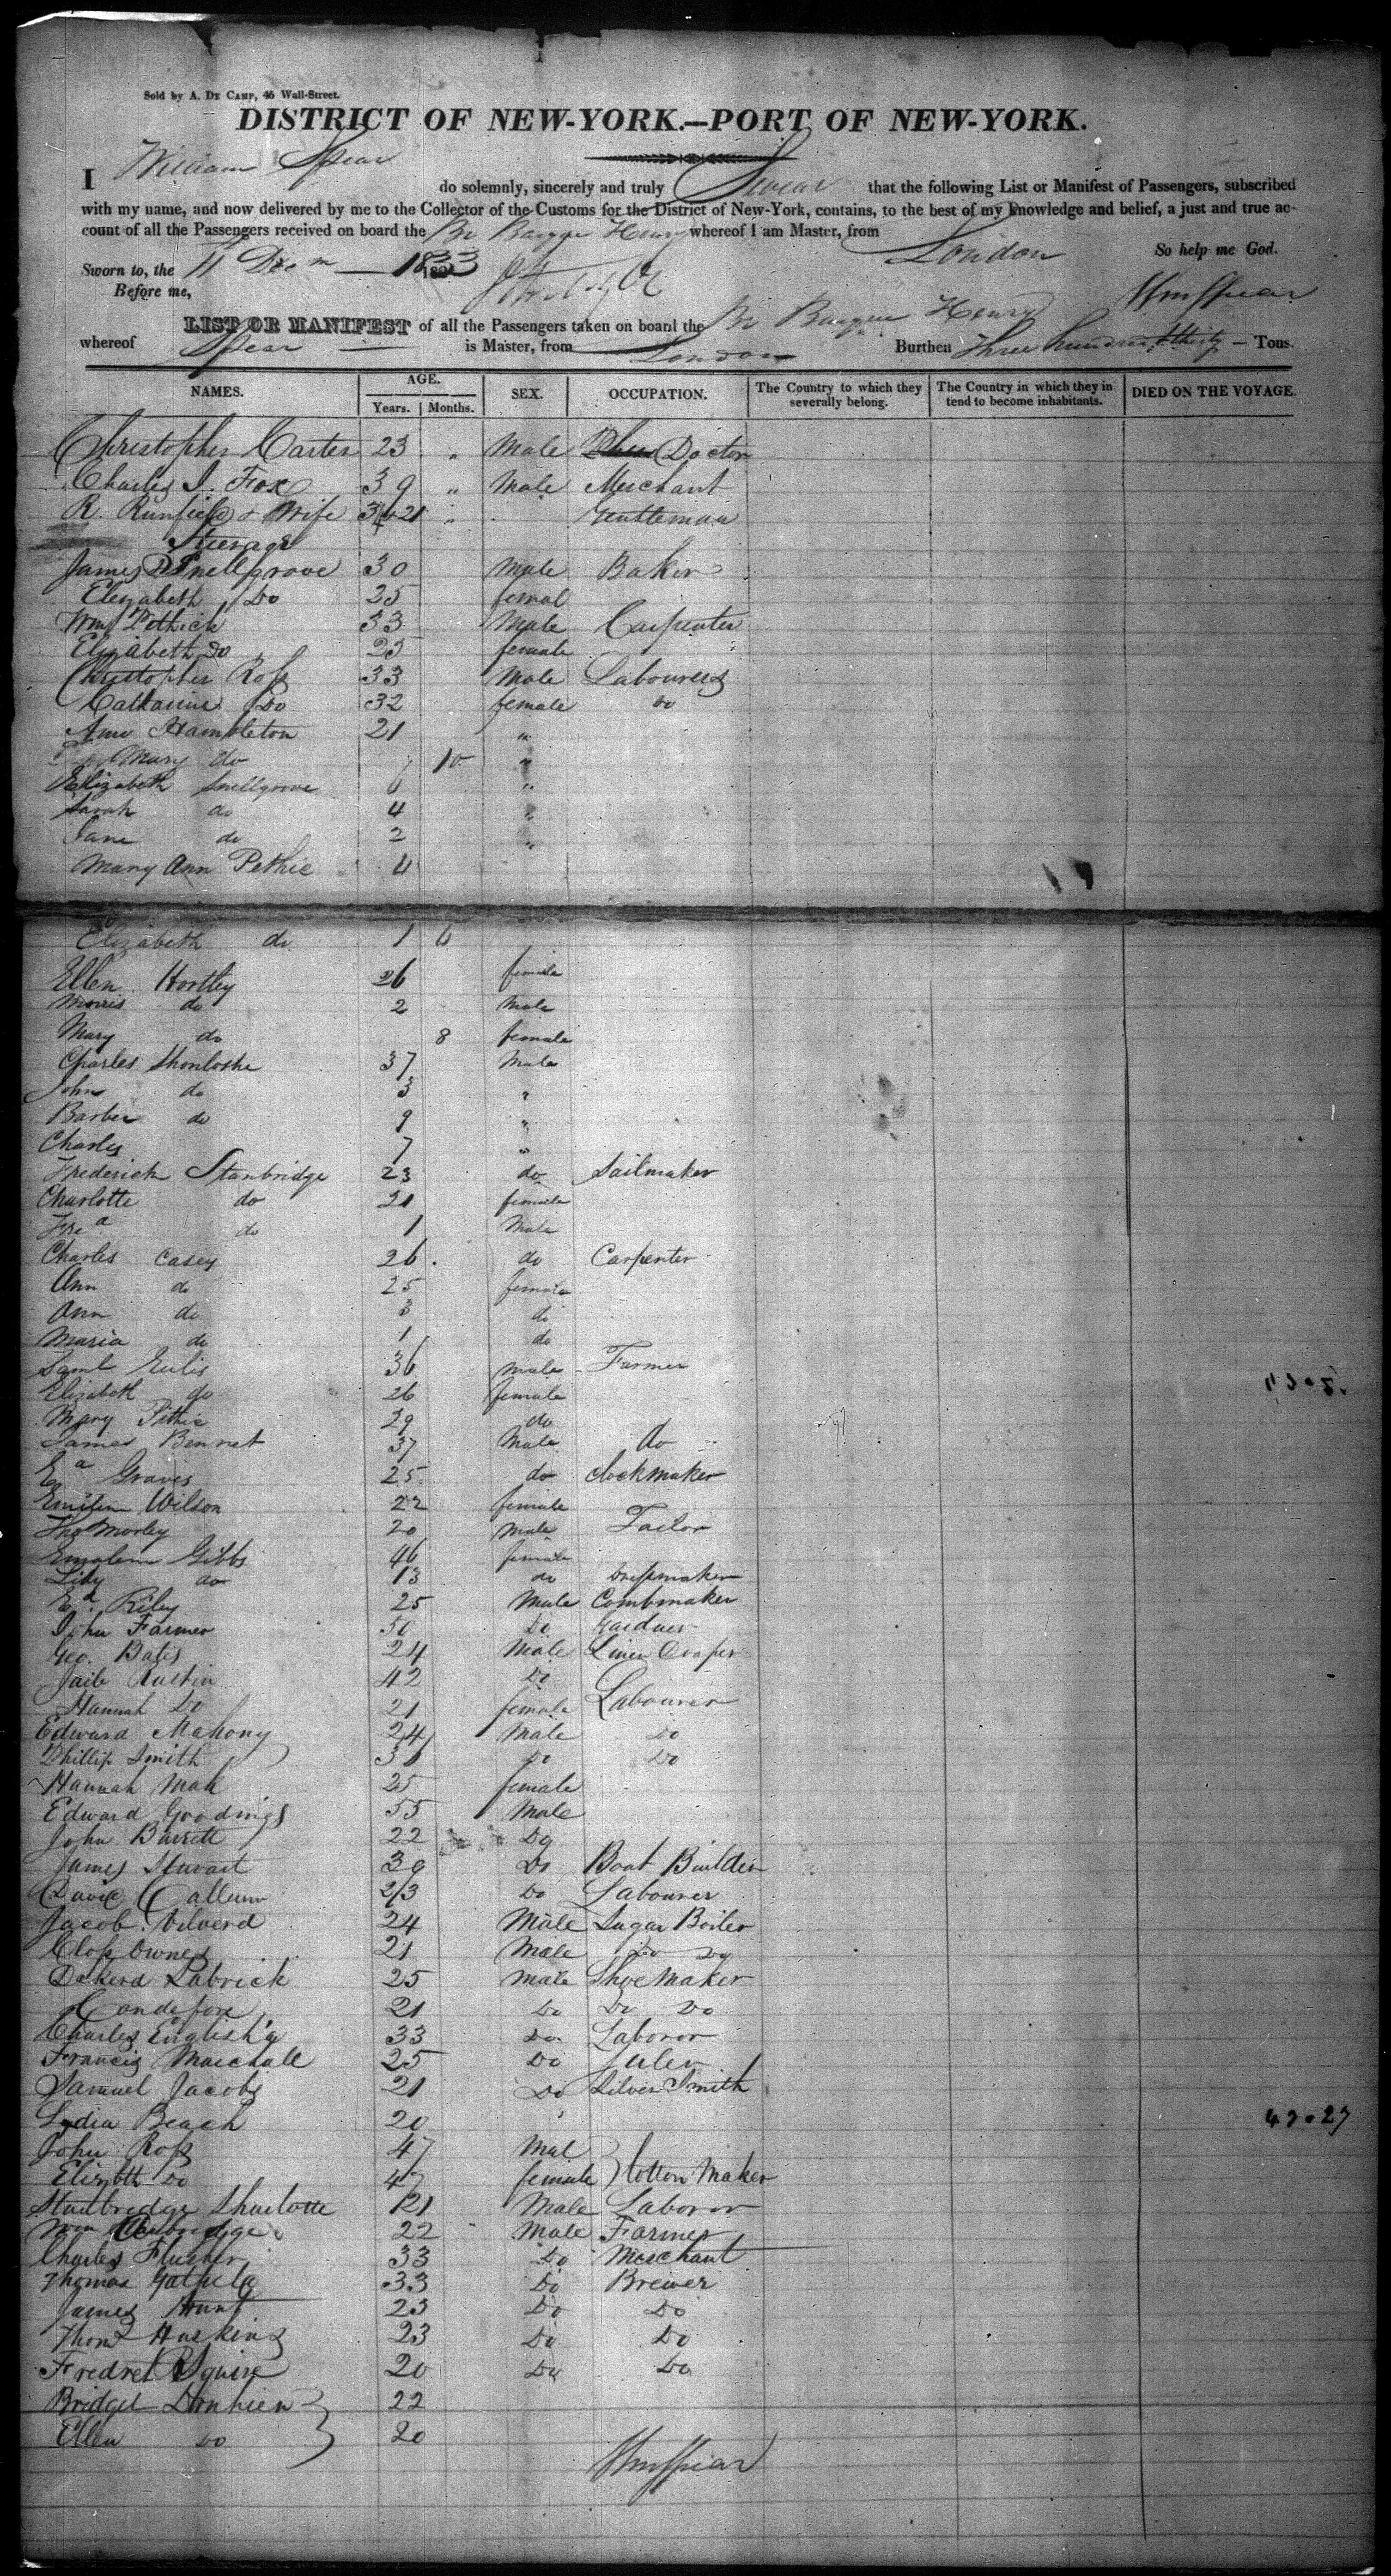 Sold by A. De Camp, 46 Wall-Street.
DISTRICT OF NEW-YORK.—PORT OF NEW-YORK.
I William Spear do solemnly, sincerely and truly Swear that the following List or Manifest of Passengers, subscribed
with my name, and now delivered by me to the Collector of the Customs for the District of New-York, contains, to the best of my knowledge and belief, a just and true ac-
count of all the Passengers received on board the Br Barque Henry whereof I am Master, from London
So help me God.
Sworn to, the 11 Decm 1833
Before me,
Wm Spear
LIST OR MANIFEST of all the Passengers taken on board the Br Barque Henry
whereof Spear is Master, from London Burthen Three hundred & thirty Tons.
NAMES. AGE. Years. Months. SEX. OCCUPATION. The Country to which they severally belong. The Country in which they intend to become inhabitants. DIED ON THE VOYAGE.
Christopher Carter 23 " Male Doctor
Charles J. Fox 39 " Male Merchant
R. Runfield & Wife 34 21 " Gentleman
Steerage
James Snellgrove 30 Male Baker
Elizabeth Do 25 femal
Wm Pethick 33 Male Carpenter
Elizabeth Do 25 female
Christopher Ross 33 Male Labourers
Catharine Do 32 female Do
Ann Hambleton 21 "
Mary do 10 "
Elizabeth Snellgrove 6 "
Sarah do 4 "
Jane do 2 "
Mary Ann Pethic 4
Elizabeth do 1 6
Ellen Hortley 26 female
Morris do 2 Male
Mary do 8 female
Charles 37 Male
John do 3 "
Barber do 9 "
Charles 7 "
Frederick Stanbridge 23 do Sailmaker
Charlotte do 21 female
Fred do 1 Male
Charles Casey 26 do Carpenter
Ann do 25 female
Ann do 3 do
Maria do 1 do
Saml 36 male Farmer
Elizabeth do 26 female
Mary Pithic 29 do
James Bennet 37 Male do
Graves 25 do Clockmaker
Wilson 22 female
Tho Morley 20 male Tailor
Emalem Gibbs 46 female
do 13 do Dressmaker
Ed Riley 25 Male Combmaker
John Farmer 50 Do Gardner
Geo. Bates 24 Male Linen Draper
Austin 42 Do
Hannah Do 21 female Labourer
Edward Mahony 24 Male Do
Phillip Smith 36 Do Do
Hannah Mak 25 female
Edward Goodings 55 Male
John Barrett 22 Do
James Stuart 30 Do Boat Builder
David Callum 23 Do Labourer
Jacob 24 Male Sugar Boiler
Ownes 21 Male Do Do
Labrick 25 male Shoe Maker
21 Do Do Do
Charles 33 Do Laboror
Francis Marchall 25 Do
Samuel Jacobs 21 Do Silver Smith
Lydia Beach 20
John Ross 47 Mal
Elizbth Do 47 female Cotton Maker
Stanbredge Sharlotte 21 Male Laboror
Wm 22 Male Farmer
Charles 33 Do Merchant
Thomas 33 Do Brewer
James Hunt 23 Do Do
Thom Haskins 23 Do Do
Fredrek Squire 20 Do Do
Bridget 22
Ellen Do 20
Wm Spear